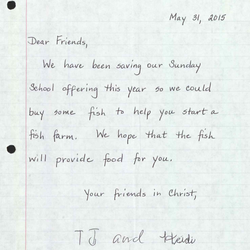 May 31, 2015
Dear Friends,
We have been saving our Sunday
School offering this year so we could
buy some fish to help you start a
fish farm. We hope that the fish
will provide food for you.
Your friends in Christ,
TJ and Heidi